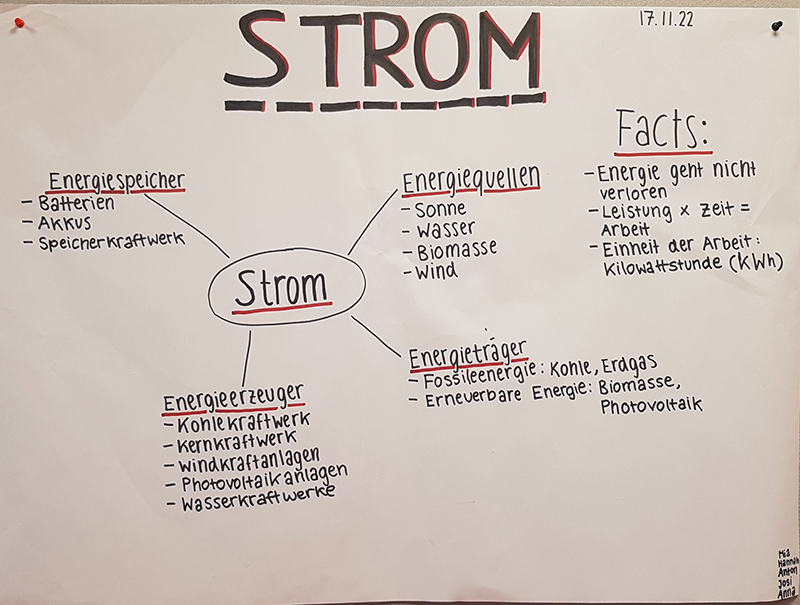 STROM
17.11.22
Energiespeicher
- Batterien
- Akkus
- Speicherkraftwerk
Energiequellen
- Sonne
- Wasser
- Biomasse
- Wind
Facts:
- Energie geht nicht
verloren
- Leistung x Zeit =
Arbeit
- Einheit der Arbeit:
Kilowattstunde (kWh)
Strom
Energieträger
- Fossileenergie: Kohle, Erdgas
- Erneuerbare Energie: Biomasse,
Photovoltaik
Energieerzeuger
- Kohlekraftwerk
- Kernkraftwerk
- Windkraftanlagen
- Photovoltaikanlagen
- Wasserkraftwerke
Mia
Hannah
Anton
Josi
Anna